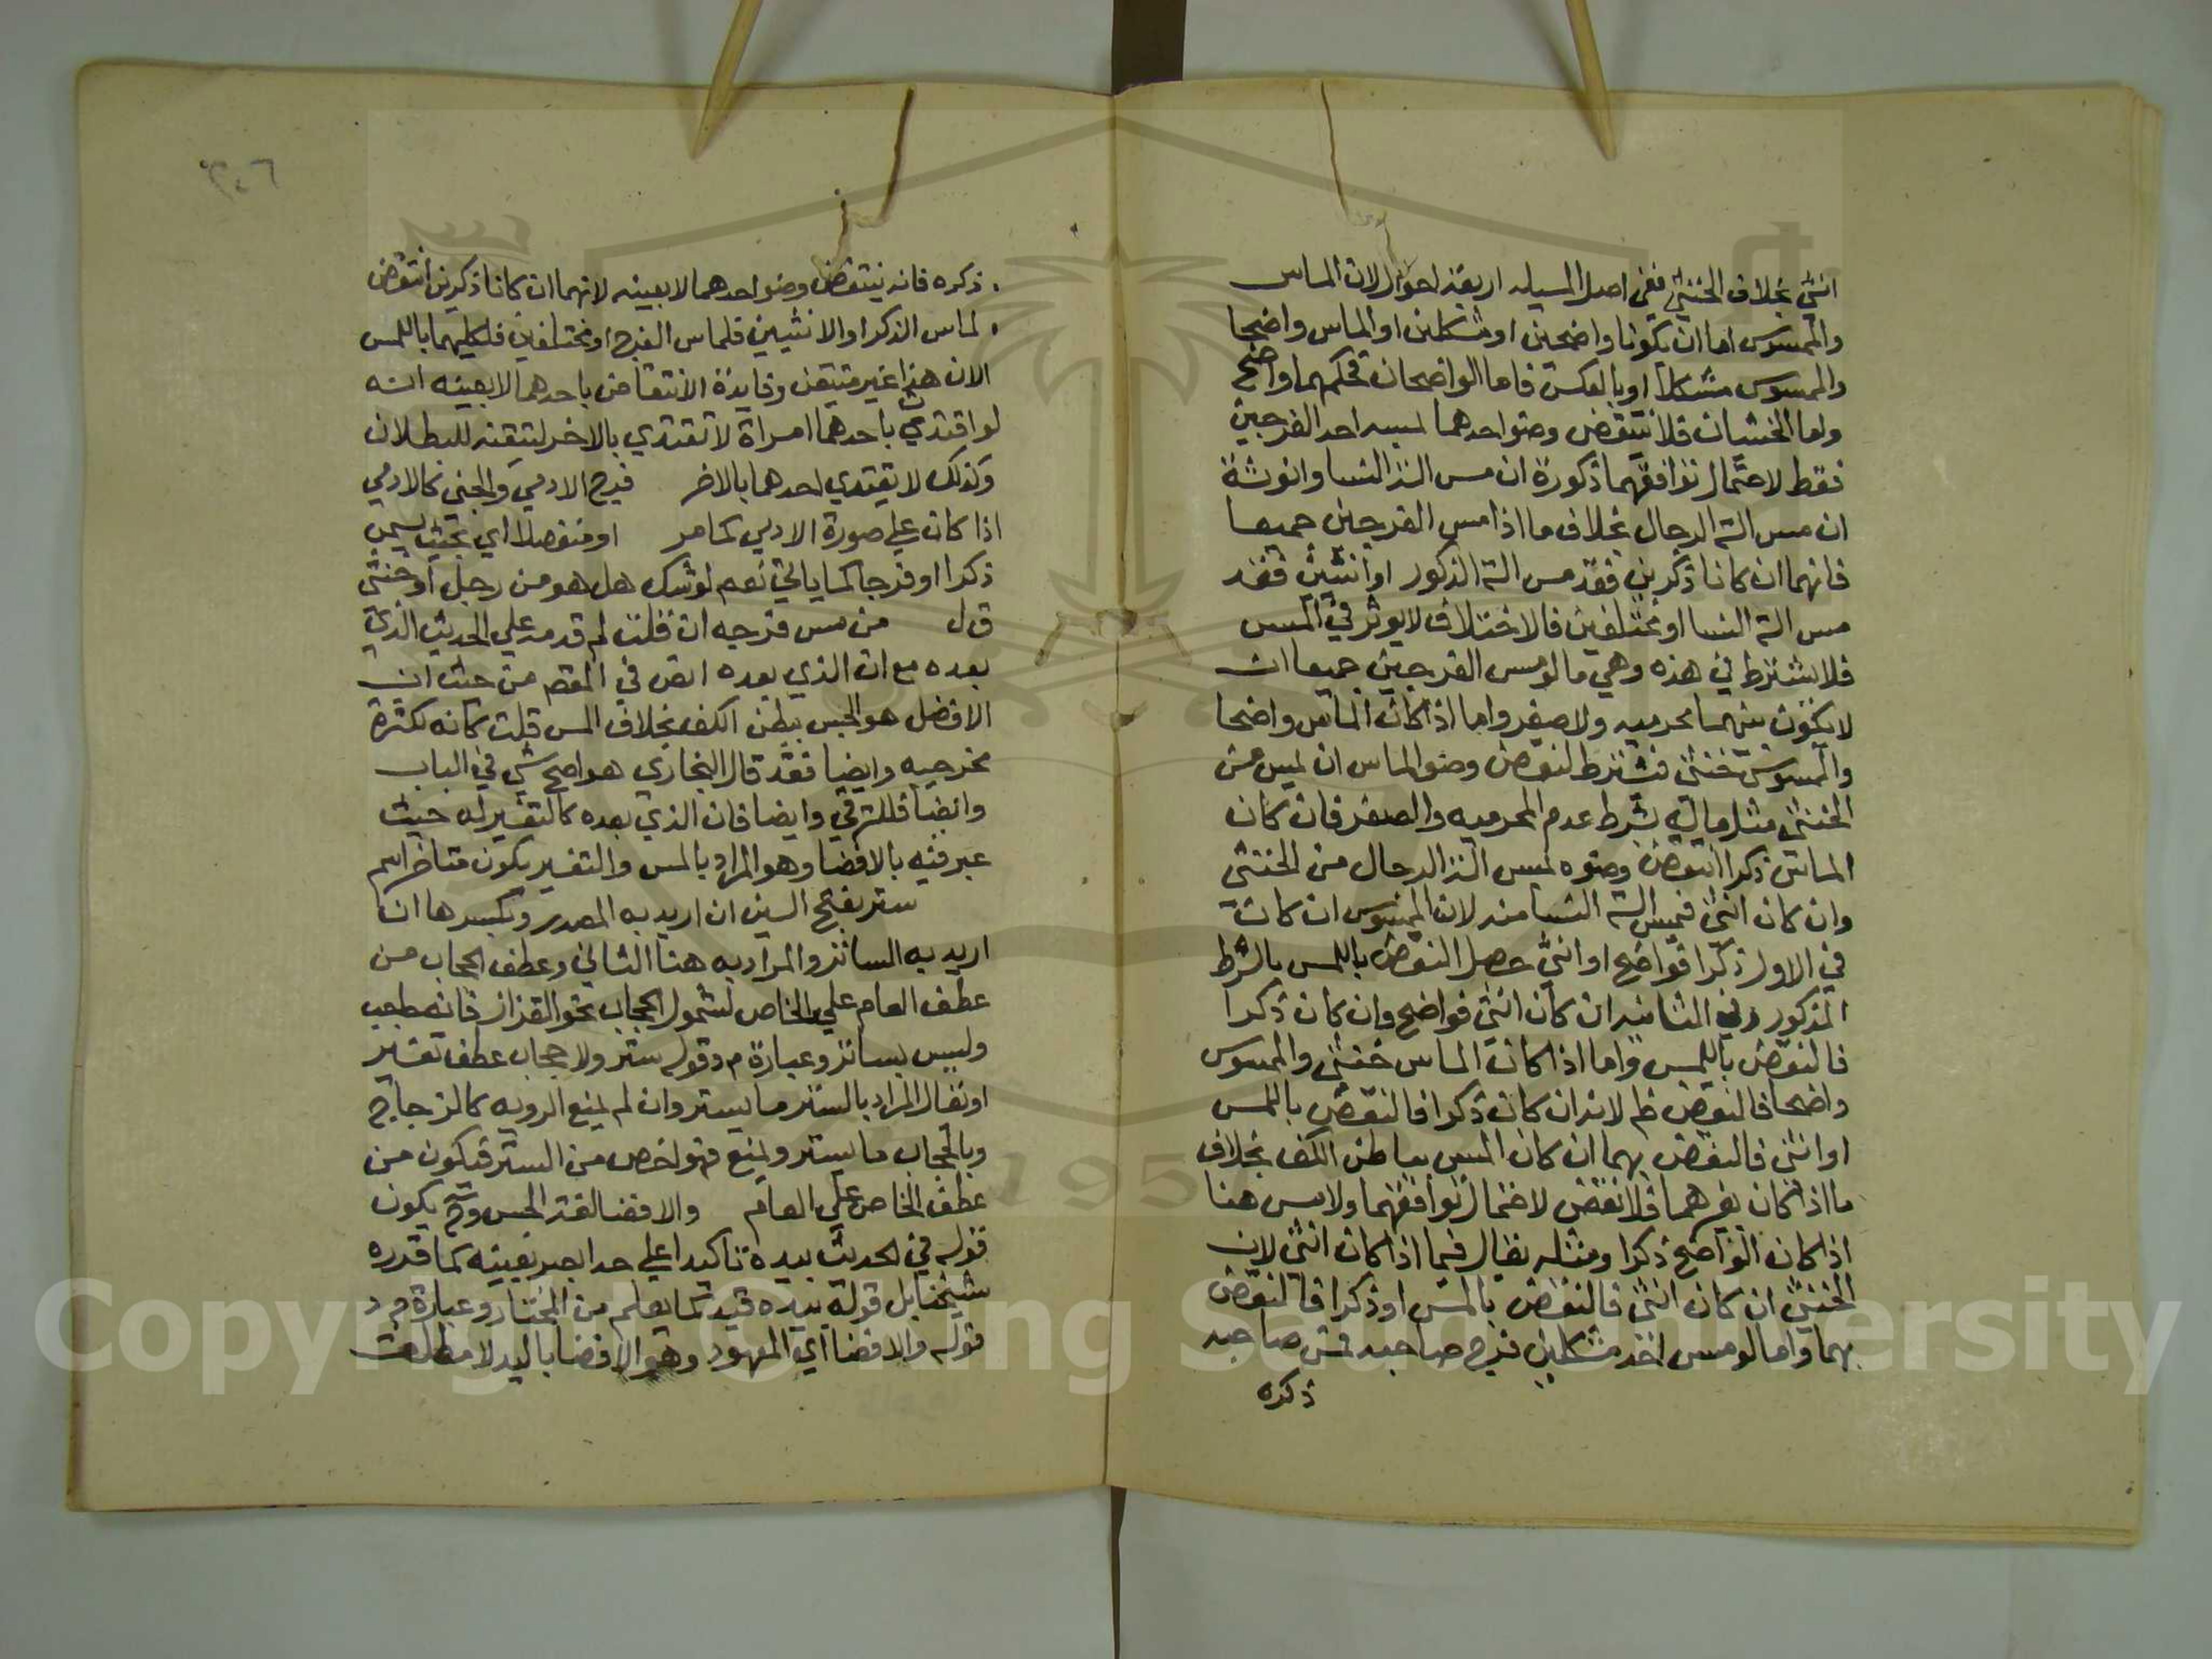 انثي بخلاف الخنثي ففي اصل المسيله اربعة احوال لان الماس
والممسوس اما ان يكونا واضحين او مشكلين او الماس واضحا
والممسوس مشكلا او بالعكس فاما الواضحان فحكمهما واضح
واما الخنثيان فلا ينتقض وضو احدهما لمسه احد الفرجين
فقط لاحتمال توافقهما ذكورة ان مس الة النسا وانوثة
ان مس الة الرجال بخلاف ما اذا مس الفرجين جميعا
فانهما ان كانا ذكرين فقد مس الة الذكور او انثيين فقد
مس الة النسا او مختلفين فالاختلاف لا يوثر في المس
فلا يشترط في هذه وهي ما لو مس الفرجين جميعا ان
لا يكون بينهما محرميه ولا صغر واما اذا كان الماس واضحا
والممسوس خنثي فيشترط لنقض وضو الماس ان يمس من
الخنثي مثل ماله بشرط عدم المحرميه والصغر فان كان
الماس ذكرا انتقض وضوه لمس الة الرجال من الخنثي
وان كان انثي فبمس الة النسا منه لان الممسوس ان كان
في الاول ذكرا فواضح او انثي حصل النقض باللمس بالشرط
المذكور وفي الثانيه ان كان انثي فواضح وان كان ذكرا
فالنقض باللمس واما اذا كان الماس خنثي والممسوس
واضحا فالنقض ظم لانه ان كان ذكرا فالنقض باللمس
او انثي فالنقض بهما ان كان المس بباطن الكف بخلاف
ما اذا كان بغيرهما فلا نقض لاحتمال توافقهما ولا مس هنا
اذا كان الواضح ذكرا ومثله يقال فيما اذا كان انثي لان
الخنثي ان كان انثي فالنقض بالمس او ذكرا فالنقض
بهما واما لو مس احد مشكلين فرج صاحبه فمس صاحبه
ذكره
٣٠٦
ذكره فانه ينتقض وضو احدهما لا بعينه لانهما ان كانا ذكرين انتقض
لماس الذكر او الانثيين فلماس الفرج او مختلفين فلكليهما باللمس
الان هذا غير متيقن وفايدة الانتقاض باحدهما لا بعينه انه
لو اقتدت باحدهما امراة لا تقتدي بالاخر لتيقنه للبطلان
وكذلك لا يقتدي احدهما بالاخر فرج الادمي والجني كالادمي
اذا كان علي صورة الادمي كما مر او منفصلا اي بحيث يسمي
ذكرا او فرجا كما ياتي نعم لو شك هل هو من رجل او خنثي
ق ل من مس فرجه ان قلت لم قدمه علي الحديث الذي
بعده مع ان الذي بعده انص في المقصم من حيث ان
الافضل هو الجس ببطن الكف بخلاف المس قلت كانه لكثرة
مخرجيه وايضا فقد قال البخاري هو اصح شي في الباب
وايضا فللترقي وايضا فان الذي بعده كالتفسير له حيث
عبر فيه بالافضا وهو المراد بالمس والتفسير يكون متاخرا هم
ستر بفتح السين ان اريد به المصدر وبكسرها ان
اريد به الساتر والمراد به هنا الثاني وعطف الحجاب من
عطف العام علي الخاص لشمول الحجاب نحو القزاز فانه حاجب
وليس بساتر وعبارة م د قوله ستر ولا حجاب عطف تفسير
او يقال المراد بالستر ما يستر وان لم يمنع الرويه كالزجاج
وبالحجاب ما يستر ويمنع فهو اخص من الستر فيكون من
عطف الخاص علي العام والافضا لغة الجس وح يكون
قوله في الحديث بيده تاكيدا علي حد ابصر بعينه كما قدره
شيخنا بل قوله بيده قيد كما يعلم من المختار وعبارة م د
قوله والافضا اي المعهود وهو الافضا باليد لا مطلقت